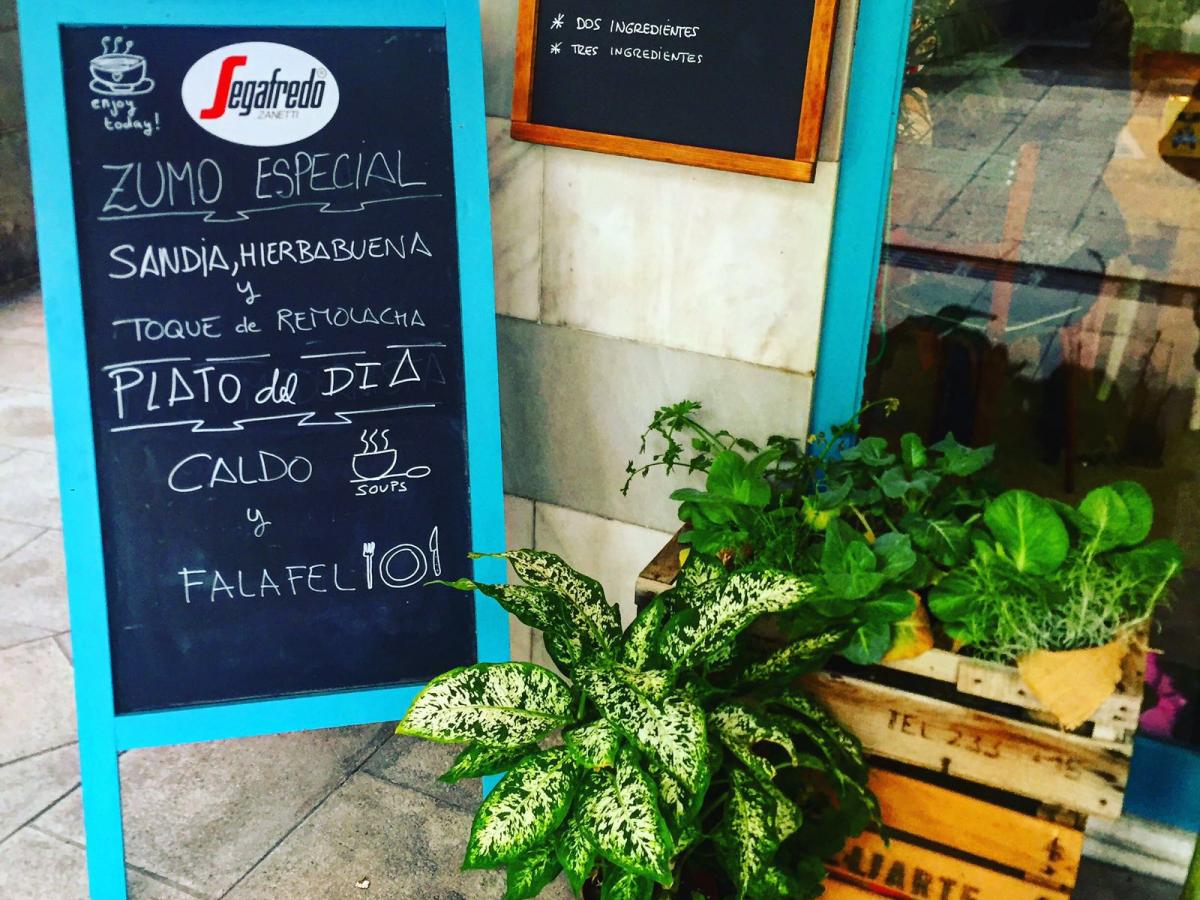 enjoy
today!
Segafredo®
ZANETTI
ZUMO ESPECIAL
SANDíA, HIERBABUENA
y
TOQUE de REMOLACHA
PLATO del DIA
CALDO
SOUPS
y
FALAFEL
* DOS INGREDIENTES
* TRES INGREDIENTES
TEL 233